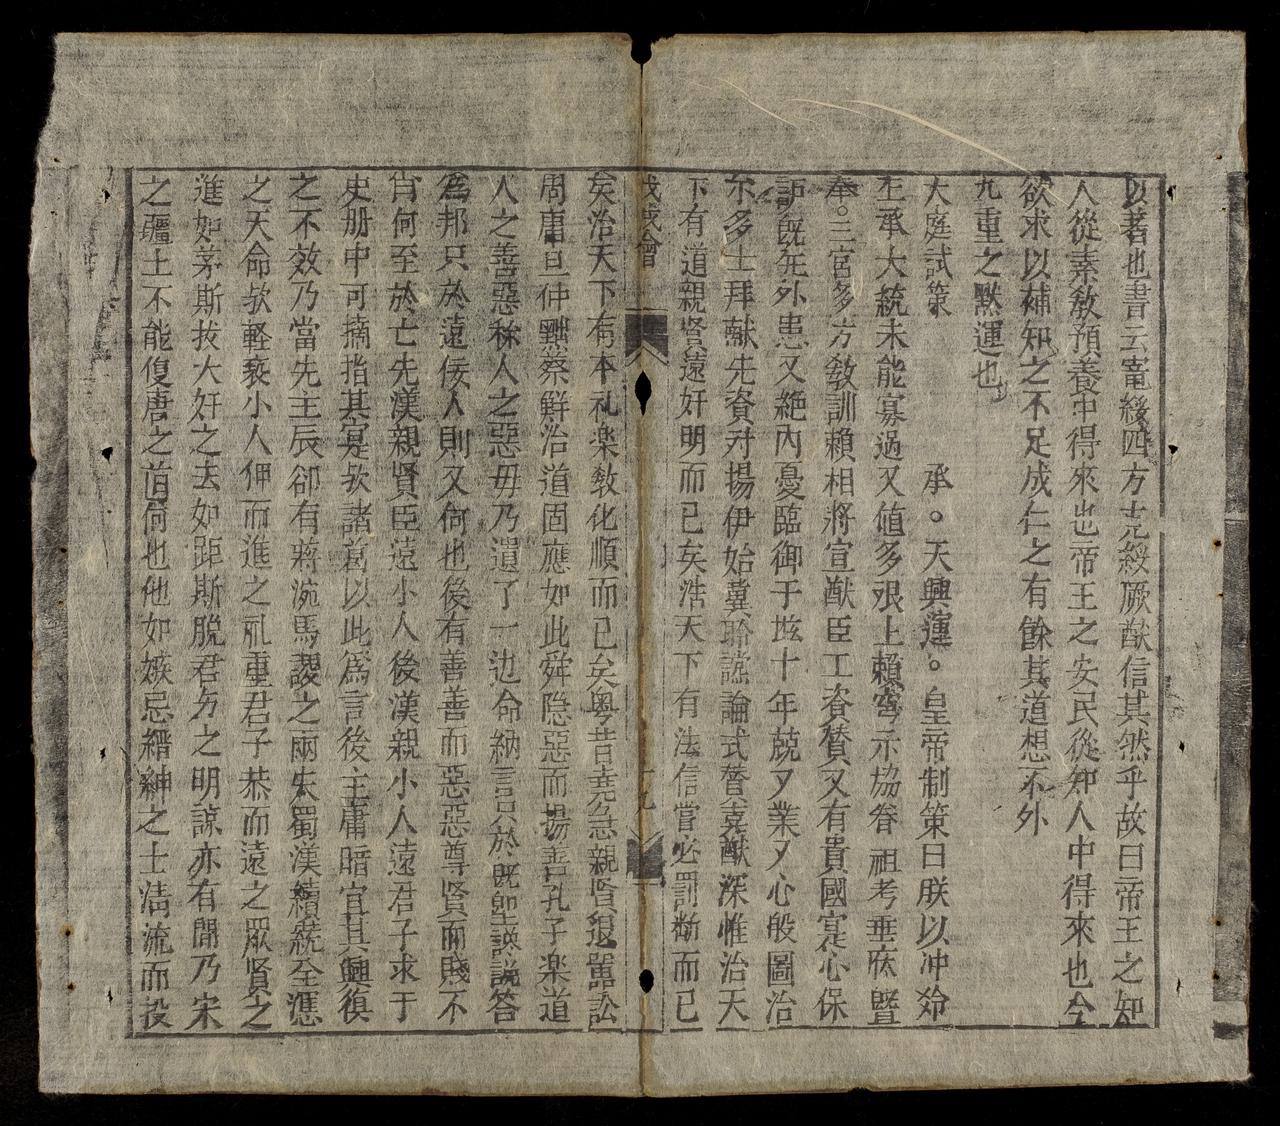 以著也書云寵綏四方克綏厥猷信其然乎故曰帝王之知
人從素教預養中得來也帝王之安民從知人中得來也今
欲求以補知之不足成仁之有餘其道想不外
九重之默運也
大庭試策 承。天興運。皇帝制策曰朕以冲齡
丕承大統未能寡過又值多艰上賴穹示協眷祖考垂庥暨
奉。三宮多方敎訓賴相將宣猷臣工資賛又有貴國寔心保
護既先外患又絶內憂臨御于玆十年兢又業又心般圖治
尔多士拜献先資对揚伊始冀聆讜論式瞽克猷深惟治天
下有道親贤遠奸明而已矣浩天下有法信賞必罰断而已
矣治天下有本礼楽敎化順而已矣粤昔堯急親贤退嚚訟
周唐旦仲黜蔡鮮治道固應如此舜隐惡而揚善孔子楽道
人之善惡称人之惡毋乃遺了一边命納言只於既聖謨説答
為邦只於遠佞人則又何也後有善善而惡惡尊贤而賤不
肖何至於亡先漢親賢臣遠小人後漢親小人遠君子求于
史册中可摘指其寔欤諸葛以此爲言後主庸暗宜其興復
之不效乃當先主辰卻有蒋琬馬謖之兩失蜀漢續統全凴
之天命欤軽亵小人狎而進之礼重君子恭而遠之眾贤之
進如茅斯拔大奸之去如距斯脱君另之明諒亦有聞乃宋
之疆土不能復唐之𫝊何也他如嫉忌縉紳之士清流而投
十九